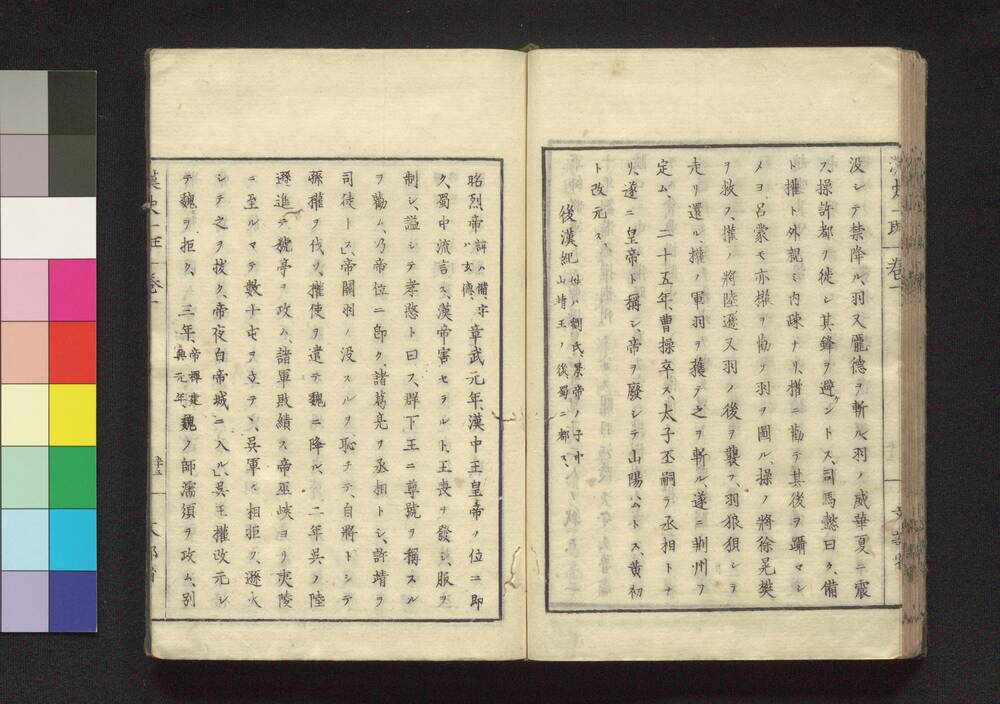 没シテ禁降ル、羽又龐德ヲ斬ル、羽ノ威華夏ニ震
フ、操許都ヲ徙シ其鋒ヲ避ケントス、司馬懿曰ク、備
ト權ト外親ミ内疎ナリ、權ニ勸テ其後ヲ躡マシ
メヨ、呂蒙モ亦權ヲ勸リ羽ヲ圖ル、操ノ將徐晃樊
ヲ救フ、權ノ將陸遜又羽ノ後ヲ襲フ、羽狼狽シヲ
走リ還ル、權ノ軍羽ヲ獲テ之ヲ斬ル、遂ニ荆州ヲ
定ム、二十五年曹操卒ス、太子丕嗣ヲ丞相トナ
リ、遂ニ皇帝ト稱シ、帝ヲ廢シテ山陽公トス、黄初
ト改元ス、
後漢紀 姓ハ劉氏景帝ノ子中
山靖王ノ後蜀ニ都ス、
昭烈帝 諱ハ備、字
ハ玄德、 章武元年、漢中王皇帝ノ位ニ即
ク、蜀中流言ス、漢帝害セラルト、王喪ヲ發シ、服ヲ
制シ、謚シテ孝愍ト曰フ、群下王ニ尊號ヲ稱スル
ヲ勸ム、乃帝位ニ即ク、諸葛亮ヲ丞相トシ、許靖ヲ
司徒トス、帝關羽ノ没スルヲ恥チテ、自將トシテ
孫權ヲ伐ツ、權使ヲ遣テ魏ニ降ル、二年呉ノ陸
遜進テ猇亭ヲ攻ム、諸軍敗績ス帝巫峽ヨリ夷陵
ニ至ルマテ數十屯ヲ立テ、呉軍ト相拒ク、遜火
シテ之ヲ拔ク、帝夜白帝城ニ入ル、呉王權改元シ
テ魏ヲ拒ク、三年、 帝禪建
興元年、 魏ノ師濡須ヲ攻ム、別
卷一